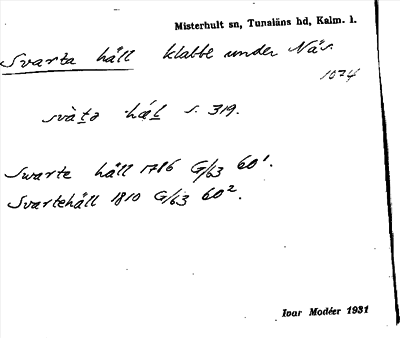 Misterhult sn, Tunaläns hd, Kalm. l.
Svarta håll klabbe under Näs.
1074
svàta hál s. 319.
Swarte håll 1786 G/63 60¹.
Svartehåll 1810 G/63 60².
Ivar Modéer 1931